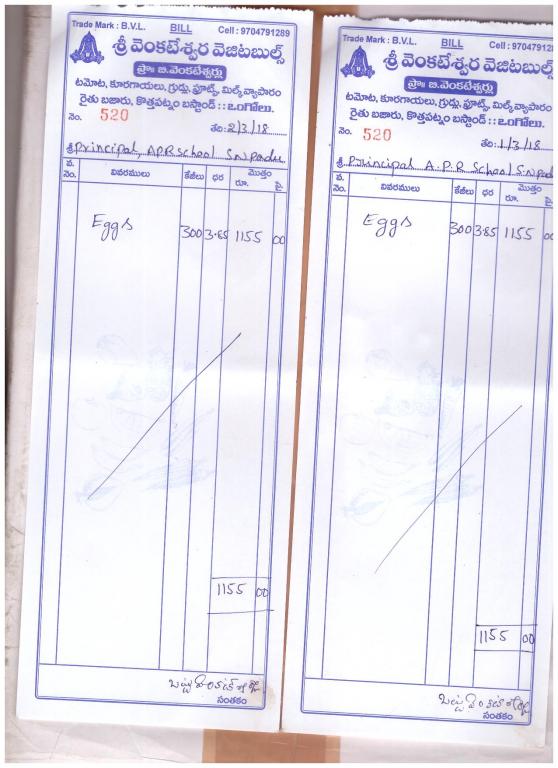 Trade Mark : B.V.L. BILL Cell : 9704791289
శ్రీ వెంకటేశ్వర వెజిటబుల్స్
ప్రొః బి.వెంకటేశ్వర్లు
టమోట, కూరగాయలు, గ్రుడ్లు, ఫ్రూట్స్, మిల్క్ వ్యాపారం
రైతు బజారు, కొత్తపట్నం బస్టాండ్ : ఒంగోలు.
నెం. 520 తేది: 2/3/18
శ్రీ Principal, APR School S.N.Padu
వ. నెం. వివరములు కేజీలు ధర మొత్తం రూ. పై.
Eggs 300 3.85 1155 00
1155 00
సంతకం
Trade Mark : B.V.L. BILL Cell : 970479128
శ్రీ వెంకటేశ్వర వెజిటబుల్స్
ప్రొః బి.వెంకటేశ్వర్లు
టమోట, కూరగాయలు, గ్రుడ్లు, ఫ్రూట్స్, మిల్క్ వ్యాపారం
రైతు బజారు, కొత్తపట్నం బస్టాండ్ : ఒంగోలు.
నెం. 520 తేది: 1/3/18
శ్రీ Principal A.P.R School S.N.Pad
వ. నెం. వివరములు కేజీలు ధర మొత్తం రూ. పై.
Eggs 300 3.85 1155 00
1155 00
సంతకం